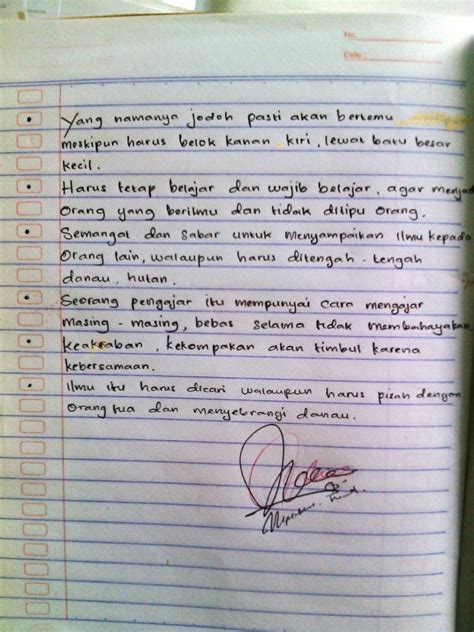 No.
Date :
• Yang namanya jodoh pasti akan bertemu
meskipun harus belok kanan, kiri, lewat batu besar
kecil.
• Harus tetap belajar dan wajib belajar, agar menjad
orang yang berilmu dan tidak ditipu orang.
• Semangat dan sabar untuk menyampaikan Ilmu kepada
orang lain, walaupun harus ditengah-tengah
danau, hutan.
• Seorang pengajar itu mempunyai cara mengajar
masing-masing, bebas selama tidak membahayakan
• keakraban, kekompakan akan timbul karena
kebersamaan.
• Ilmu itu harus dicari walaupun harus pisah dengan
orang tua dan menyebrangi danau.